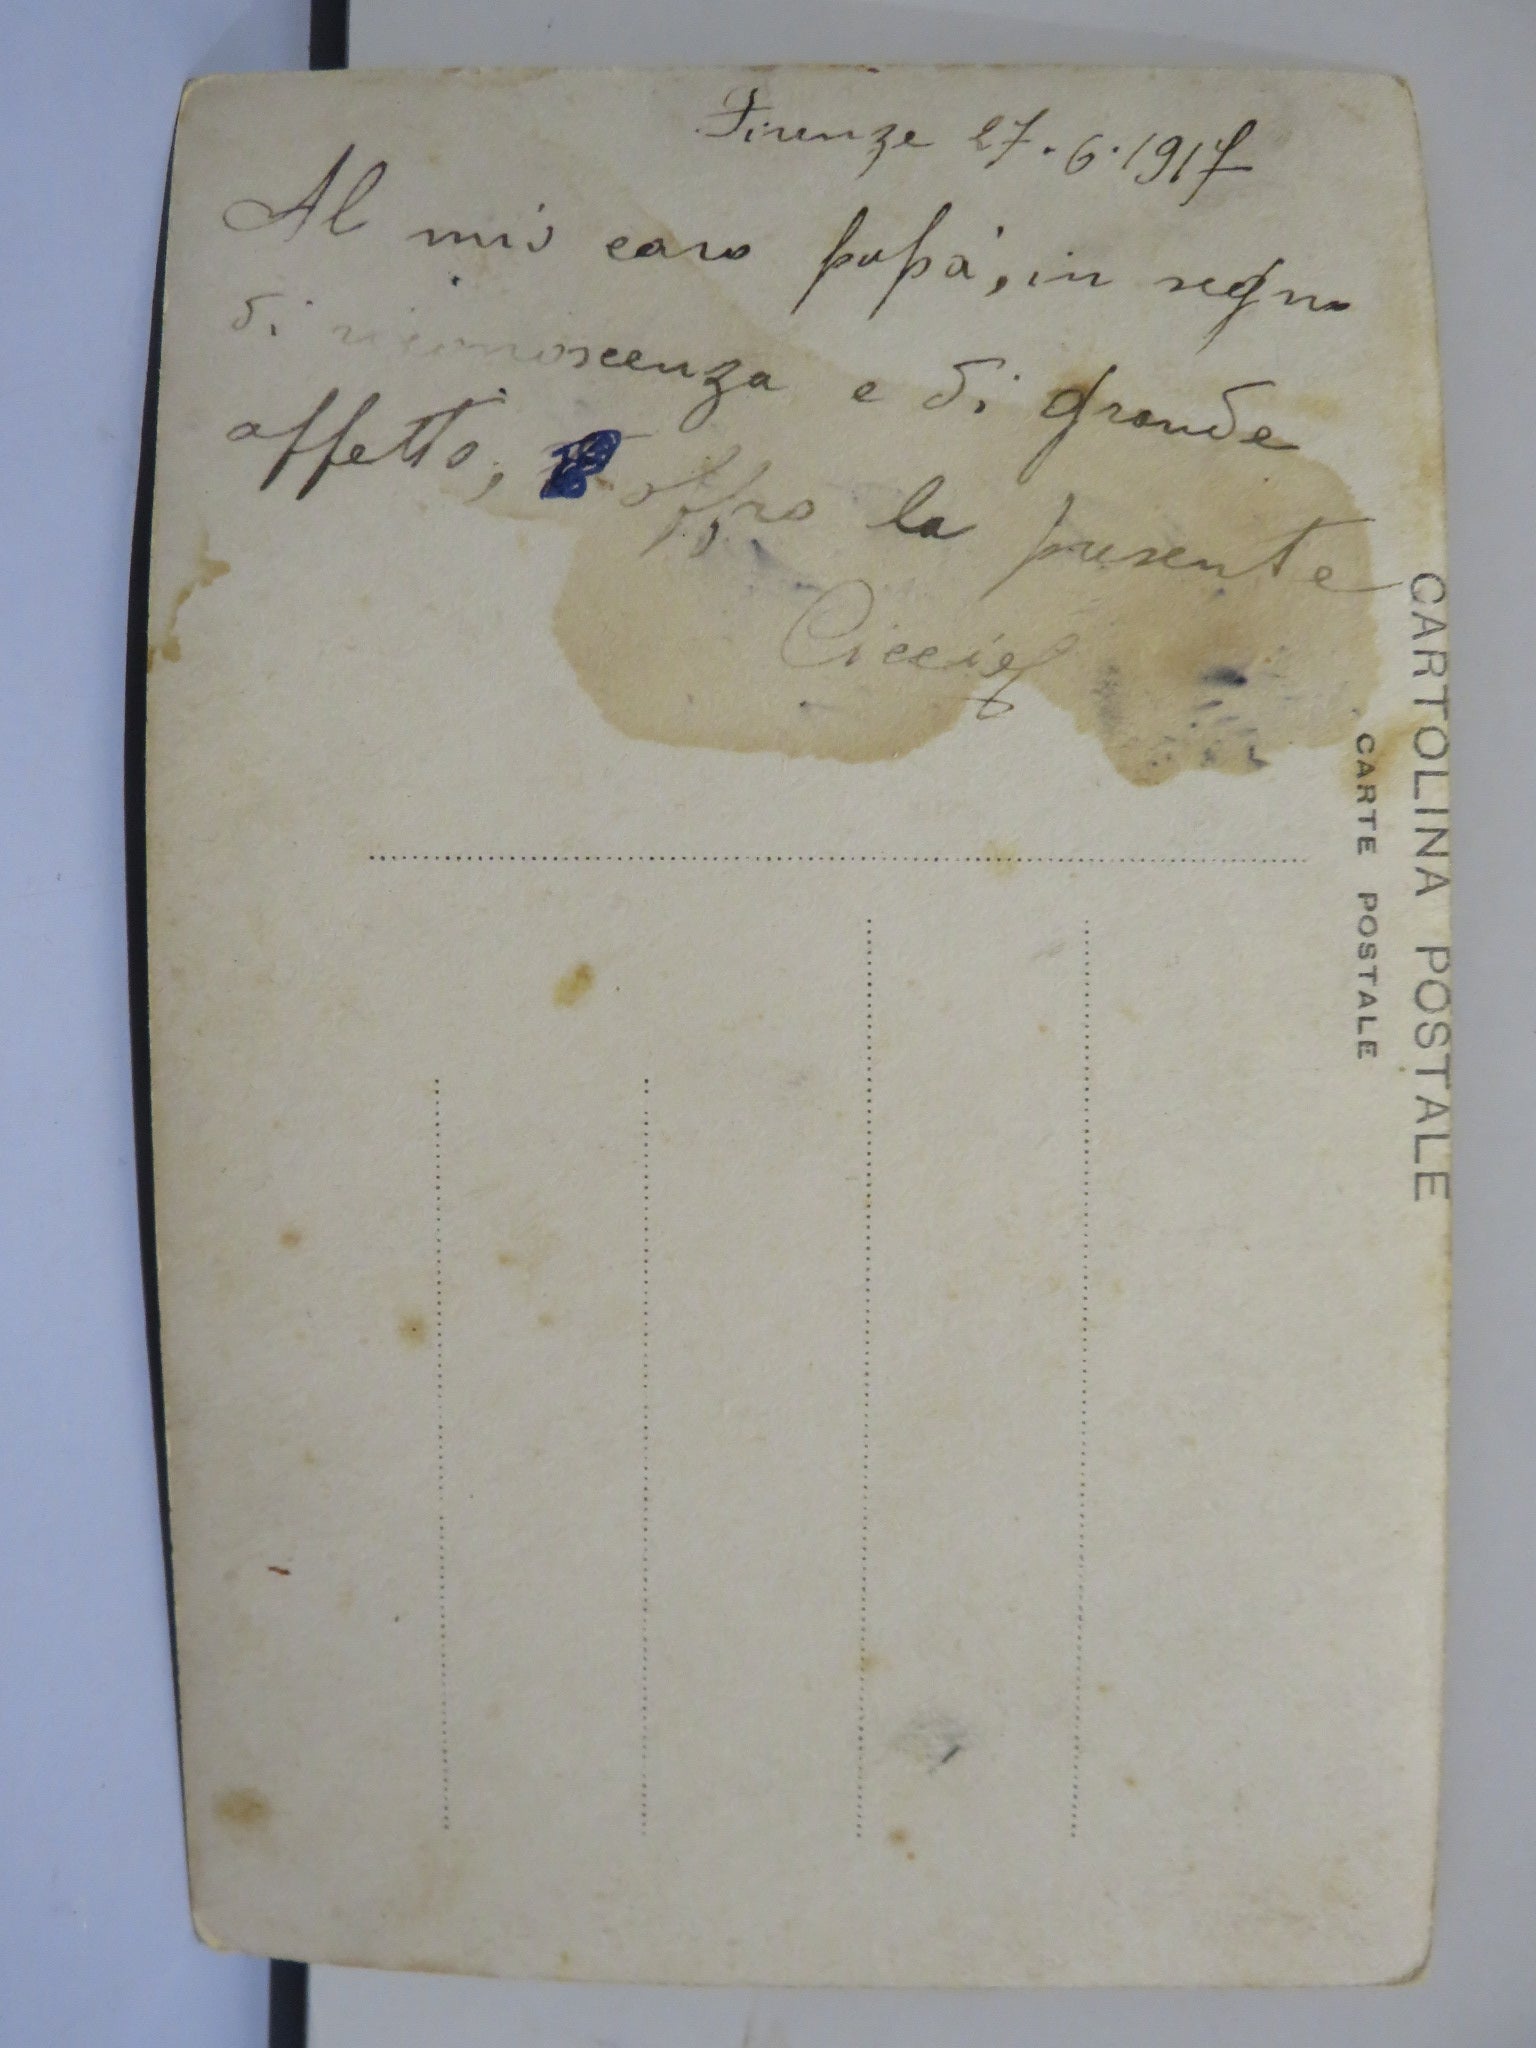 Firenze 27.6.1917
Al mio caro papà, in segno
di riconoscenza e di grande
affetto, offro la presente
CARTOLINA POSTALE
CARTE POSTALE